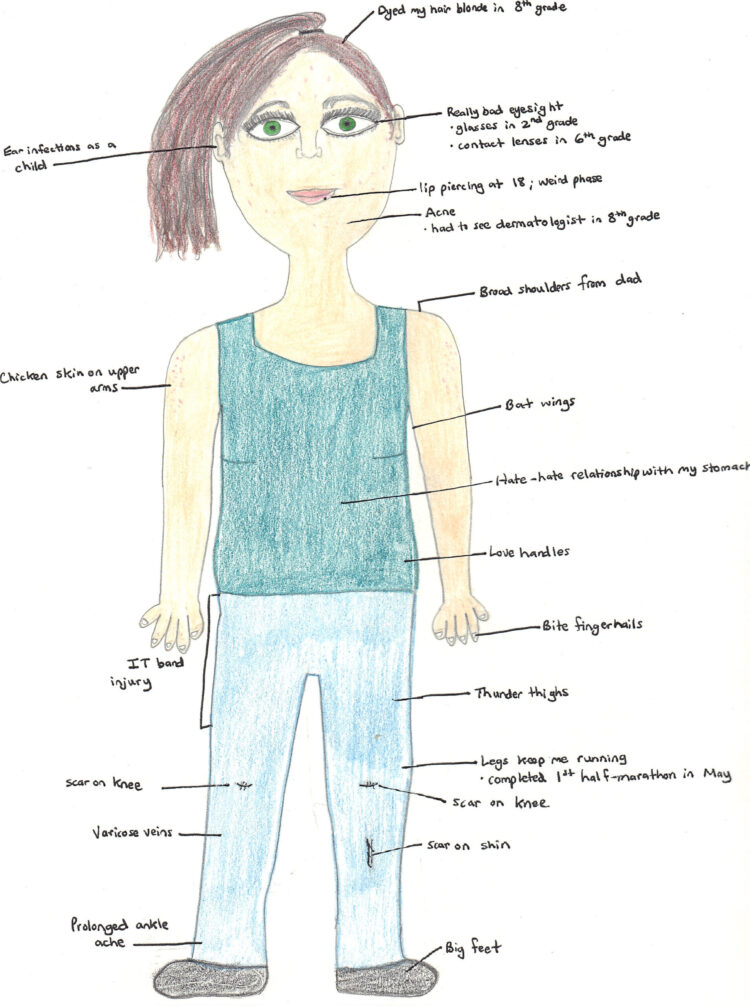 Dyed my hair blonde in 8th grade
Really bad eyesight
· glasses in 2nd grade
· contact lenses in 6th grade
Ear infections as a
child
lip piercing at 18; weird phase
Acne
· had to see dermatologist in 8th grade
Broad shoulders from dad
Chicken skin on upper
arms
Bat wings
Hate-hate relationship with my stomach
Love handles
Bite fingernails
IT band
injury
Thunder thighs
Legs keep me running
· completed 1st half-marathon in May
scar on knee
scar on knee
Varicose veins
scar on shin
Prolonged ankle
ache
Big feet